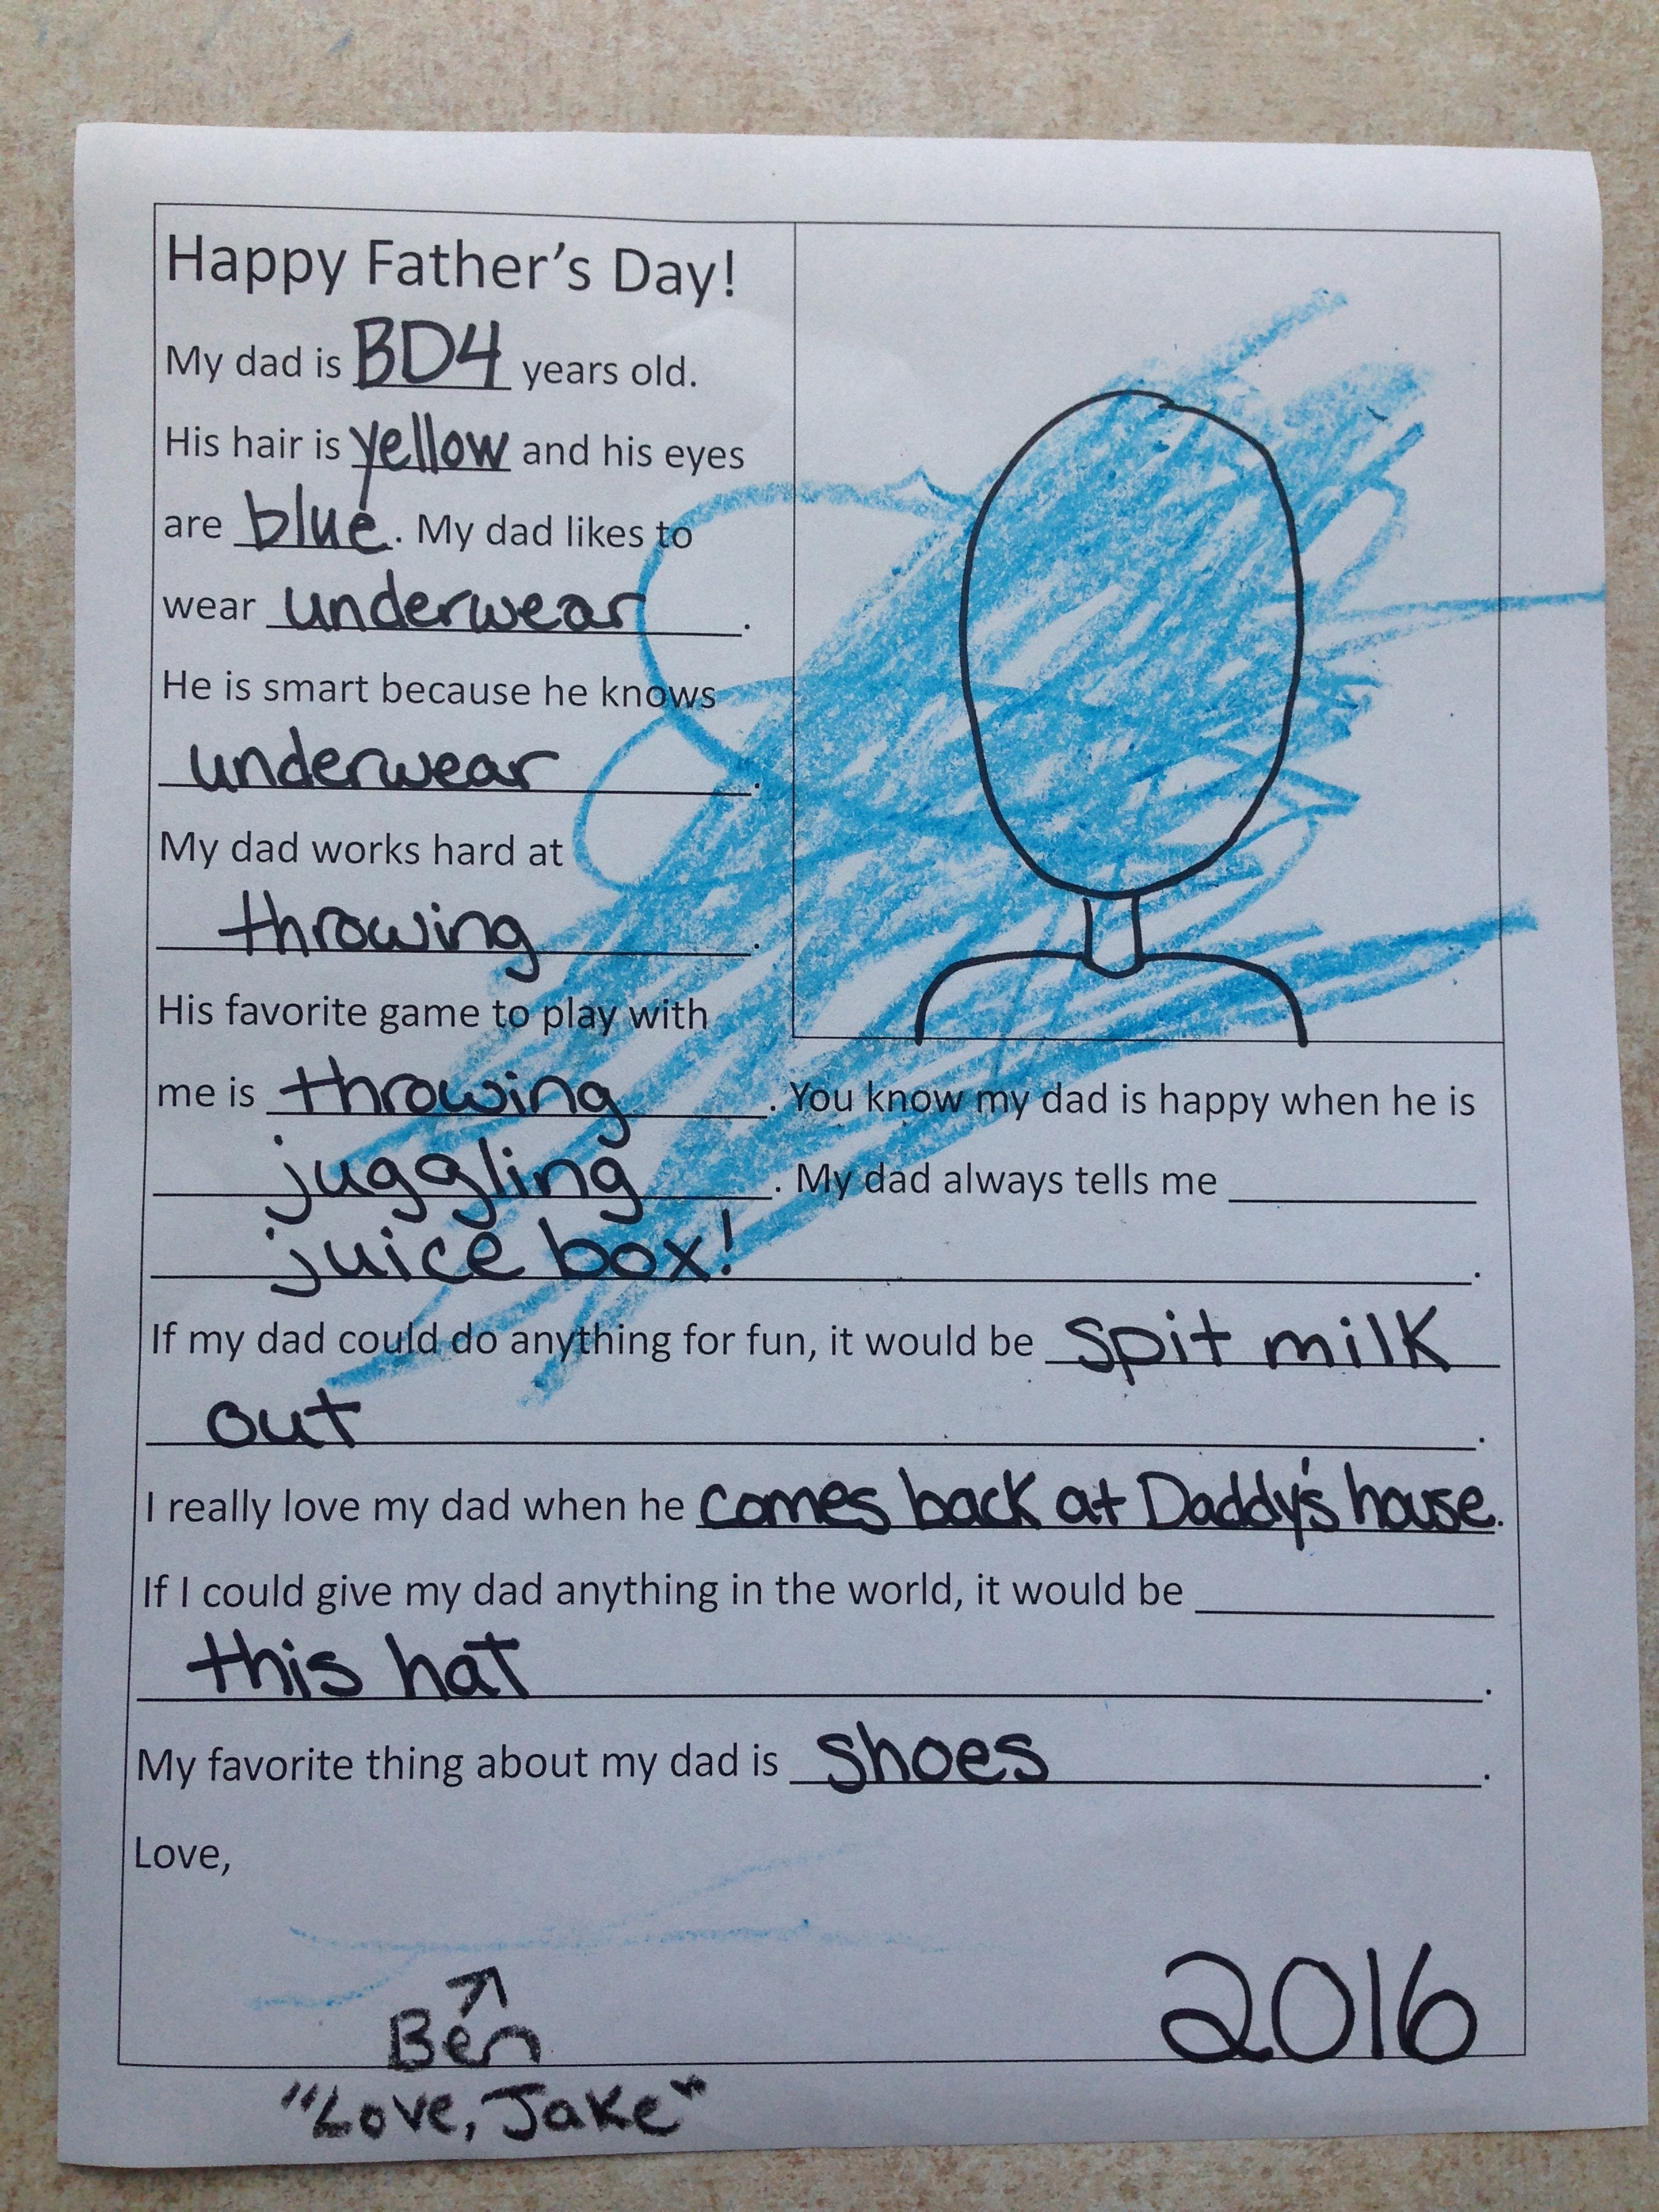 Happy Father's Day!
My dad is BD4 years old.
His hair is yellow and his eyes
are blue. My dad likes to
wear underwear.
He is smart because he knows
underwear.
My dad works hard at
throwing.
His favorite game to play with
me is throwing. You know my dad is happy when he is
juggling. My dad always tells me
juice box!.
If my dad could do anything for fun, it would be spit milk
out.
I really love my dad when he comes back at Daddy's house.
If I could give my dad anything in the world, it would be
this hat.
My favorite thing about my dad is shoes.
Love,
Ben
2016
"Love, Jake"